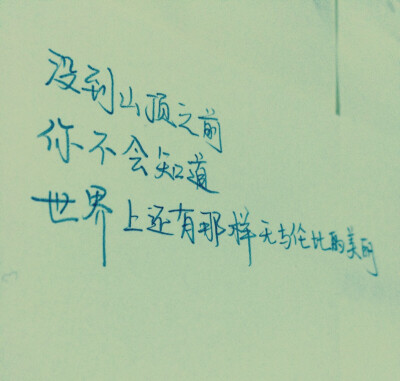 没到山顶之前
你不会知道
世界上还有那样无与伦比的美丽